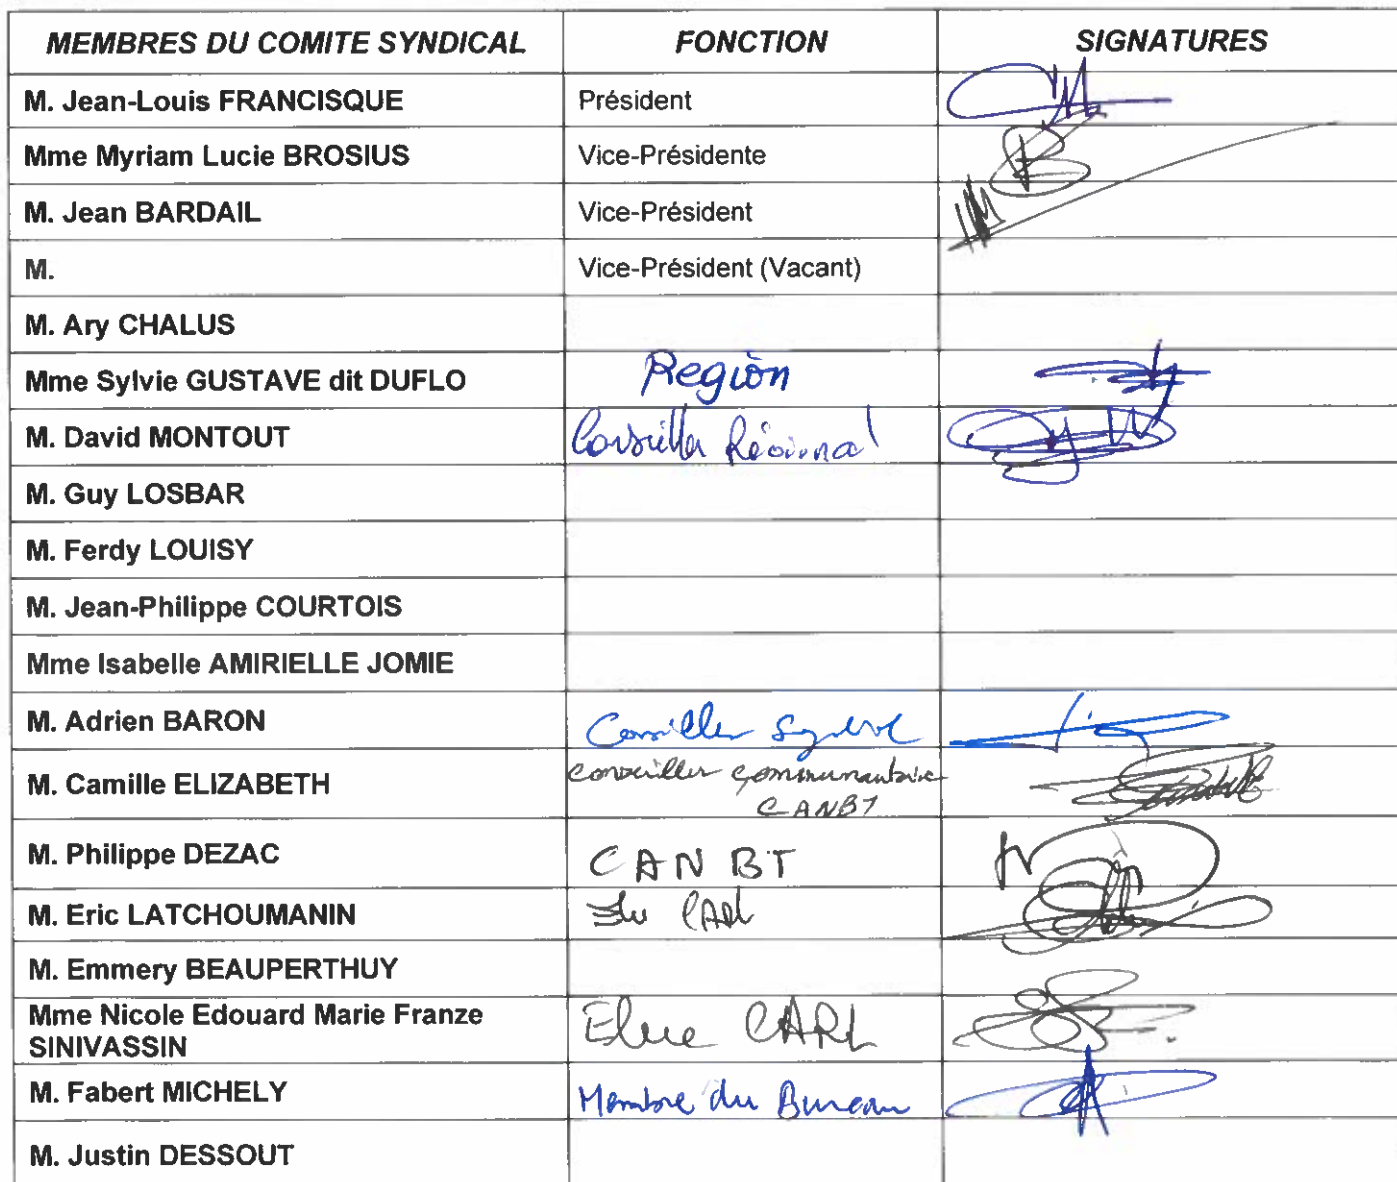 MEMBRES DU COMITE SYNDICAL FONCTION SIGNATURES
M. Jean-Louis FRANCISQUE Président
Mme Myriam Lucie BROSIUS Vice-Présidente
M. Jean BARDAIL Vice-Président
M. Vice-Président (Vacant)
M. Ary CHALUS
Mme Sylvie GUSTAVE dit DUFLO Région
M. David MONTOUT Conseiller Régional
M. Guy LOSBAR
M. Ferdy LOUISY
M. Jean-Philippe COURTOIS
Mme Isabelle AMIRIELLE JOMIE
M. Adrien BARON Conseiller
M. Camille ELIZABETH conseiller communautaire
CANBT
M. Philippe DEZAC CANBT
M. Eric LATCHOUMANIN Elu CARL
M. Emmery BEAUPERTHUY
Mme Nicole Edouard Marie Franze
SINIVASSIN Elue CARL
M. Fabert MICHELY Membre du Bureau
M. Justin DESSOUT